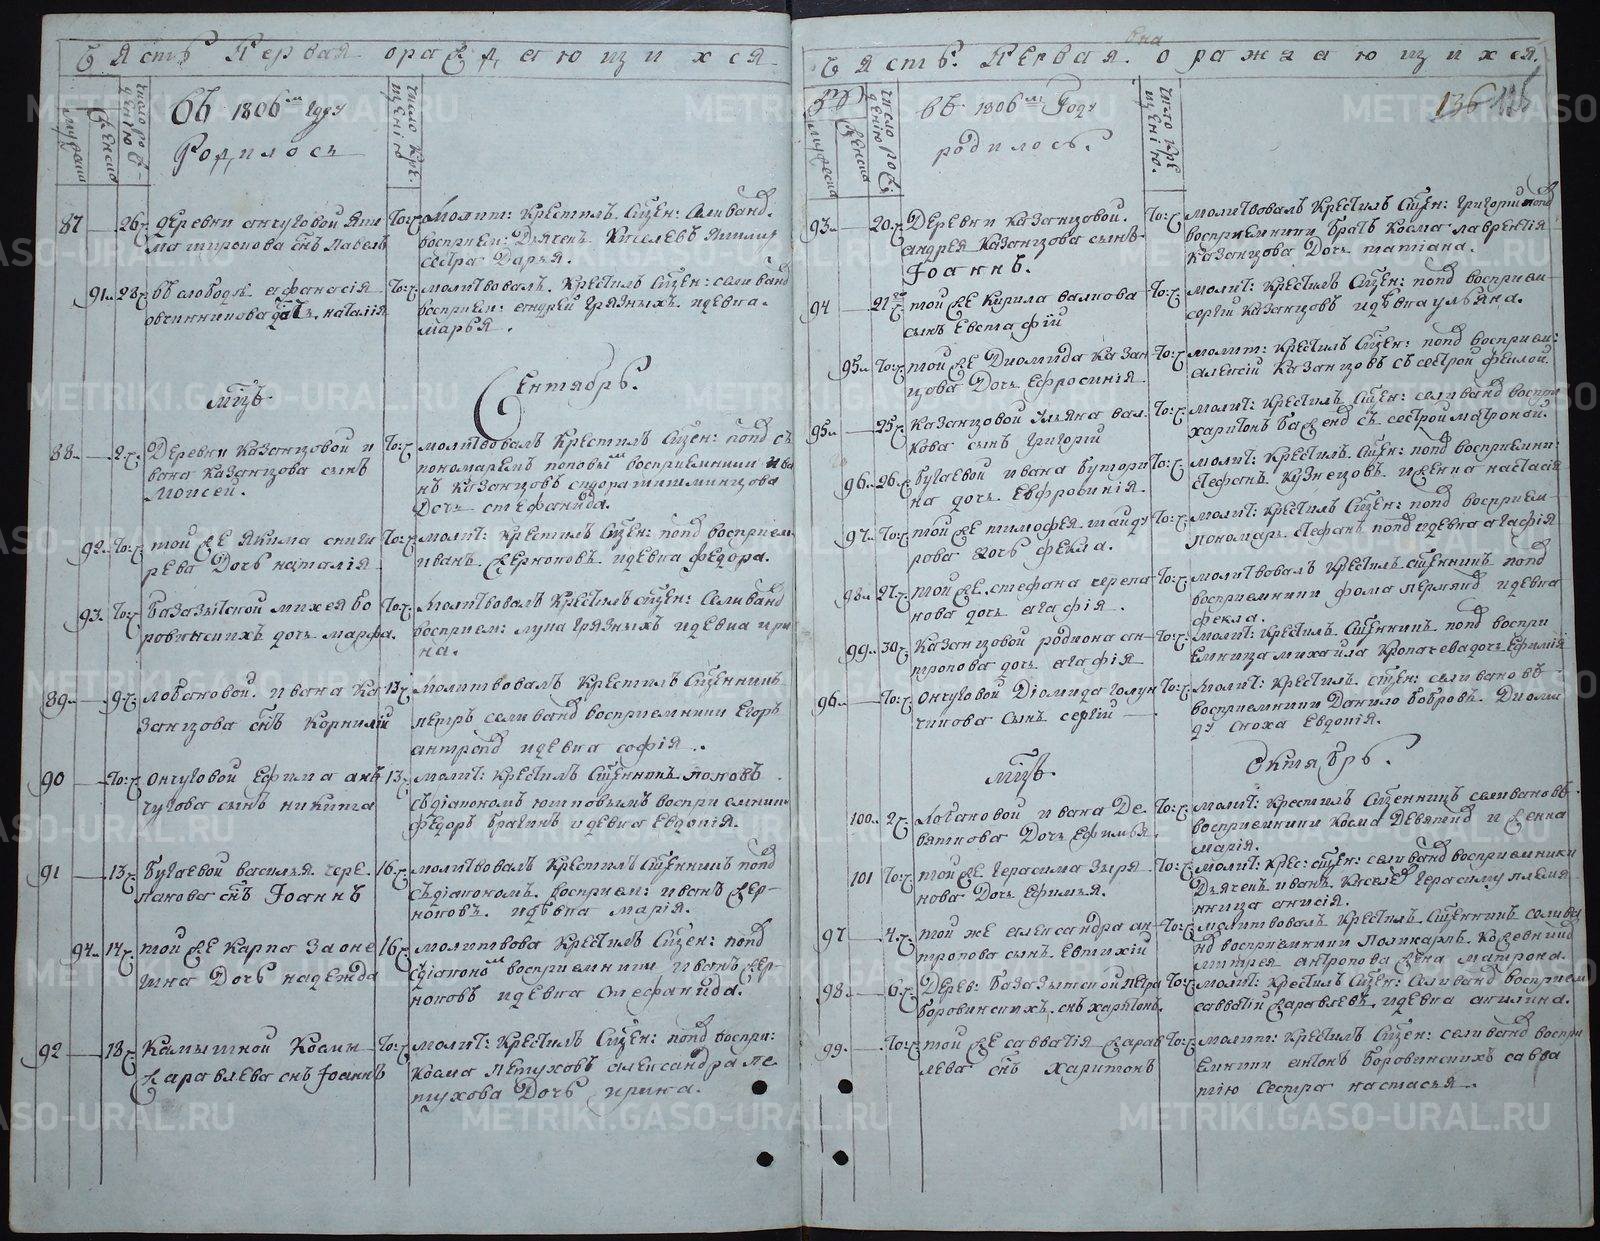 Часть Первая о раждающихся
мужеска
женска
число рожденію
въ 1806м году
Родилось
число крещенію
87 26 деревни анчуговой
сынъ Павелъ
То: молит: крестилъ Сщен: Селиванов.
восприем: Дьячекъ Киселевъ
сестра Дарья.
91 28 въ слободѣ афанасія
овчинникова дочь наталія
То: молитвовалъ крестилъ Сщен: селиванов
восприем: андрей грязныхъ и девка
марья.
мцъ Сентябрь.
88 2 Деревни казанцовой и
вана казанцова сынъ
моисей.
То: молитвовалъ крестилъ Сщен: попов съ
пономаремъ поповым восприемники ива
нъ казанцовъ
Дочь стефанида.
92 То: той же якима сниги
рева Дочь наталія
То: молит: крестилъ Сщен: попов восприем
иванъ черноновъ и девка федора.
93 То: базазытской михея бо
ровинскихъ дочь марфа.
То: молитвовалъ крестилъ сщен: Селиванов
восприем: лука грязныхъ и девка ири
на.
89 9 лобановой ивана ка
занцова снъ корнилий
13 молитвовалъ крестилъ Сщенникъ
петръ селиванов восприемники егоръ
антропов и девка софія.
90 То: анчуговой ефима ан
чугова сынъ никита
13 молит: крестилъ Сщенникъ поповъ
съ діакономъ восприемники
федоръ брагинъ и девка евдокія.
91 13 бугаевой василья чере
панова снъ Іоаннъ
16 молитвовалъ крестилъ Сщенникъ попов
съ діакономъ восприем: иванъ чер
ноновъ и девка марія.
94 14 той же карпа заоне
гина Дочь надежда
16 молитвова крестилъ Сщен: попов
съ діакономъ восприемники иванъ чер
ноновъ и девка стефанида.
92 18 камышной космы
журавлева снъ Іоаннъ
То: молит: крестилъ Сщен: попов воспри:
косма петуховъ александра пе
тухова Дочь ирина.
Часть Первая о раждающихся
мужеска
женска
число рожденію
въ 1806м Году
родилось.
число крещенію.
136
93 20 Деревни казанцовой.
андрея казанцова сынъ
Іоаннъ.
То: молитвовалъ крестилъ Сщен: григорий попов
восприемники братъ косма лаврентія
казанцова Дочь татіана.
94 21 той же кирила валкова
сынъ Евстафій
То: молит: крестилъ Сщен: попов восприем
сергій казанцовъ и девка ульяна.
95 То: той же Диомида казан
цова Дочь Ефросинія
То: молит: крестилъ Сщен: попов восприем:
алексій казанцовъ съ сестрой феклой
95 25 казанцовой ульяна вал
кова сынъ григорій
То: молит: крестилъ Сщен: селиванов воспри
харитонъ съ сестрой матроной.
96 26 бугаевой ивана бутори
на дочь евфросинія
То: молит: крестилъ Сщен: попов восприемни:
стефанъ кузнецовъ и жена настасія
97 То: той же тимофея шайду
рова дочь фекла.
То: молит: крестилъ Сщен: попов восприем
пономарь стефанъ попов и девка агафія
98 27 той же стефана черепа
нова дочь агафія.
То: молитвовалъ крестилъ сщенникъ попов
восприемники фома пермяков и девка
фекла.
99 30 казанцовой родиона ан
тропова дочь агафія
То: молит: крестилъ Сщенникъ попов воспри
емница михайла кропачева дочь Ефимія
96 То: анчуговой Діомида голун
чикова сынъ сергій
То: молит: крестилъ Сщен: селивановъ
восприемники Данило бобровъ Диоми
ду сноха Евдокія.
мцъ Октябрь.
100 2 логановой ивана Де
вяткова Дочь Ефимья
То: молит: крестилъ Сщенникъ селивановъ
восприемники косма Девятков и жена
марія.
101 То: той же герасима зыря
нова Дочь Ефимья.
То: молит: крес: сщен: селиванов восприемники
Дьячекъ иванъ киселев герасиму племя
нница анисія.
97 4 той же александра ан
тропова сынъ Евтихій
То: молитвовалъ крестилъ Сщенникъ селива
нов восприемники Поликарпъ кожевников
митрея антропова жена матрона.
98 6 Дерев: базазытской петра
боровинскихъ снъ харитонъ.
То: молит: крестилъ Сщен: Селиванов восприем
савватій журавлевъ и девка акилина.
99 То: той же савватія журав
лева снъ харитонъ
То: молит: крестилъ Сщен: селиванов воспри
емники антонъ боровинскихъ савва
тію сестра настасья.
METRIKI.GASO-URAL.RU